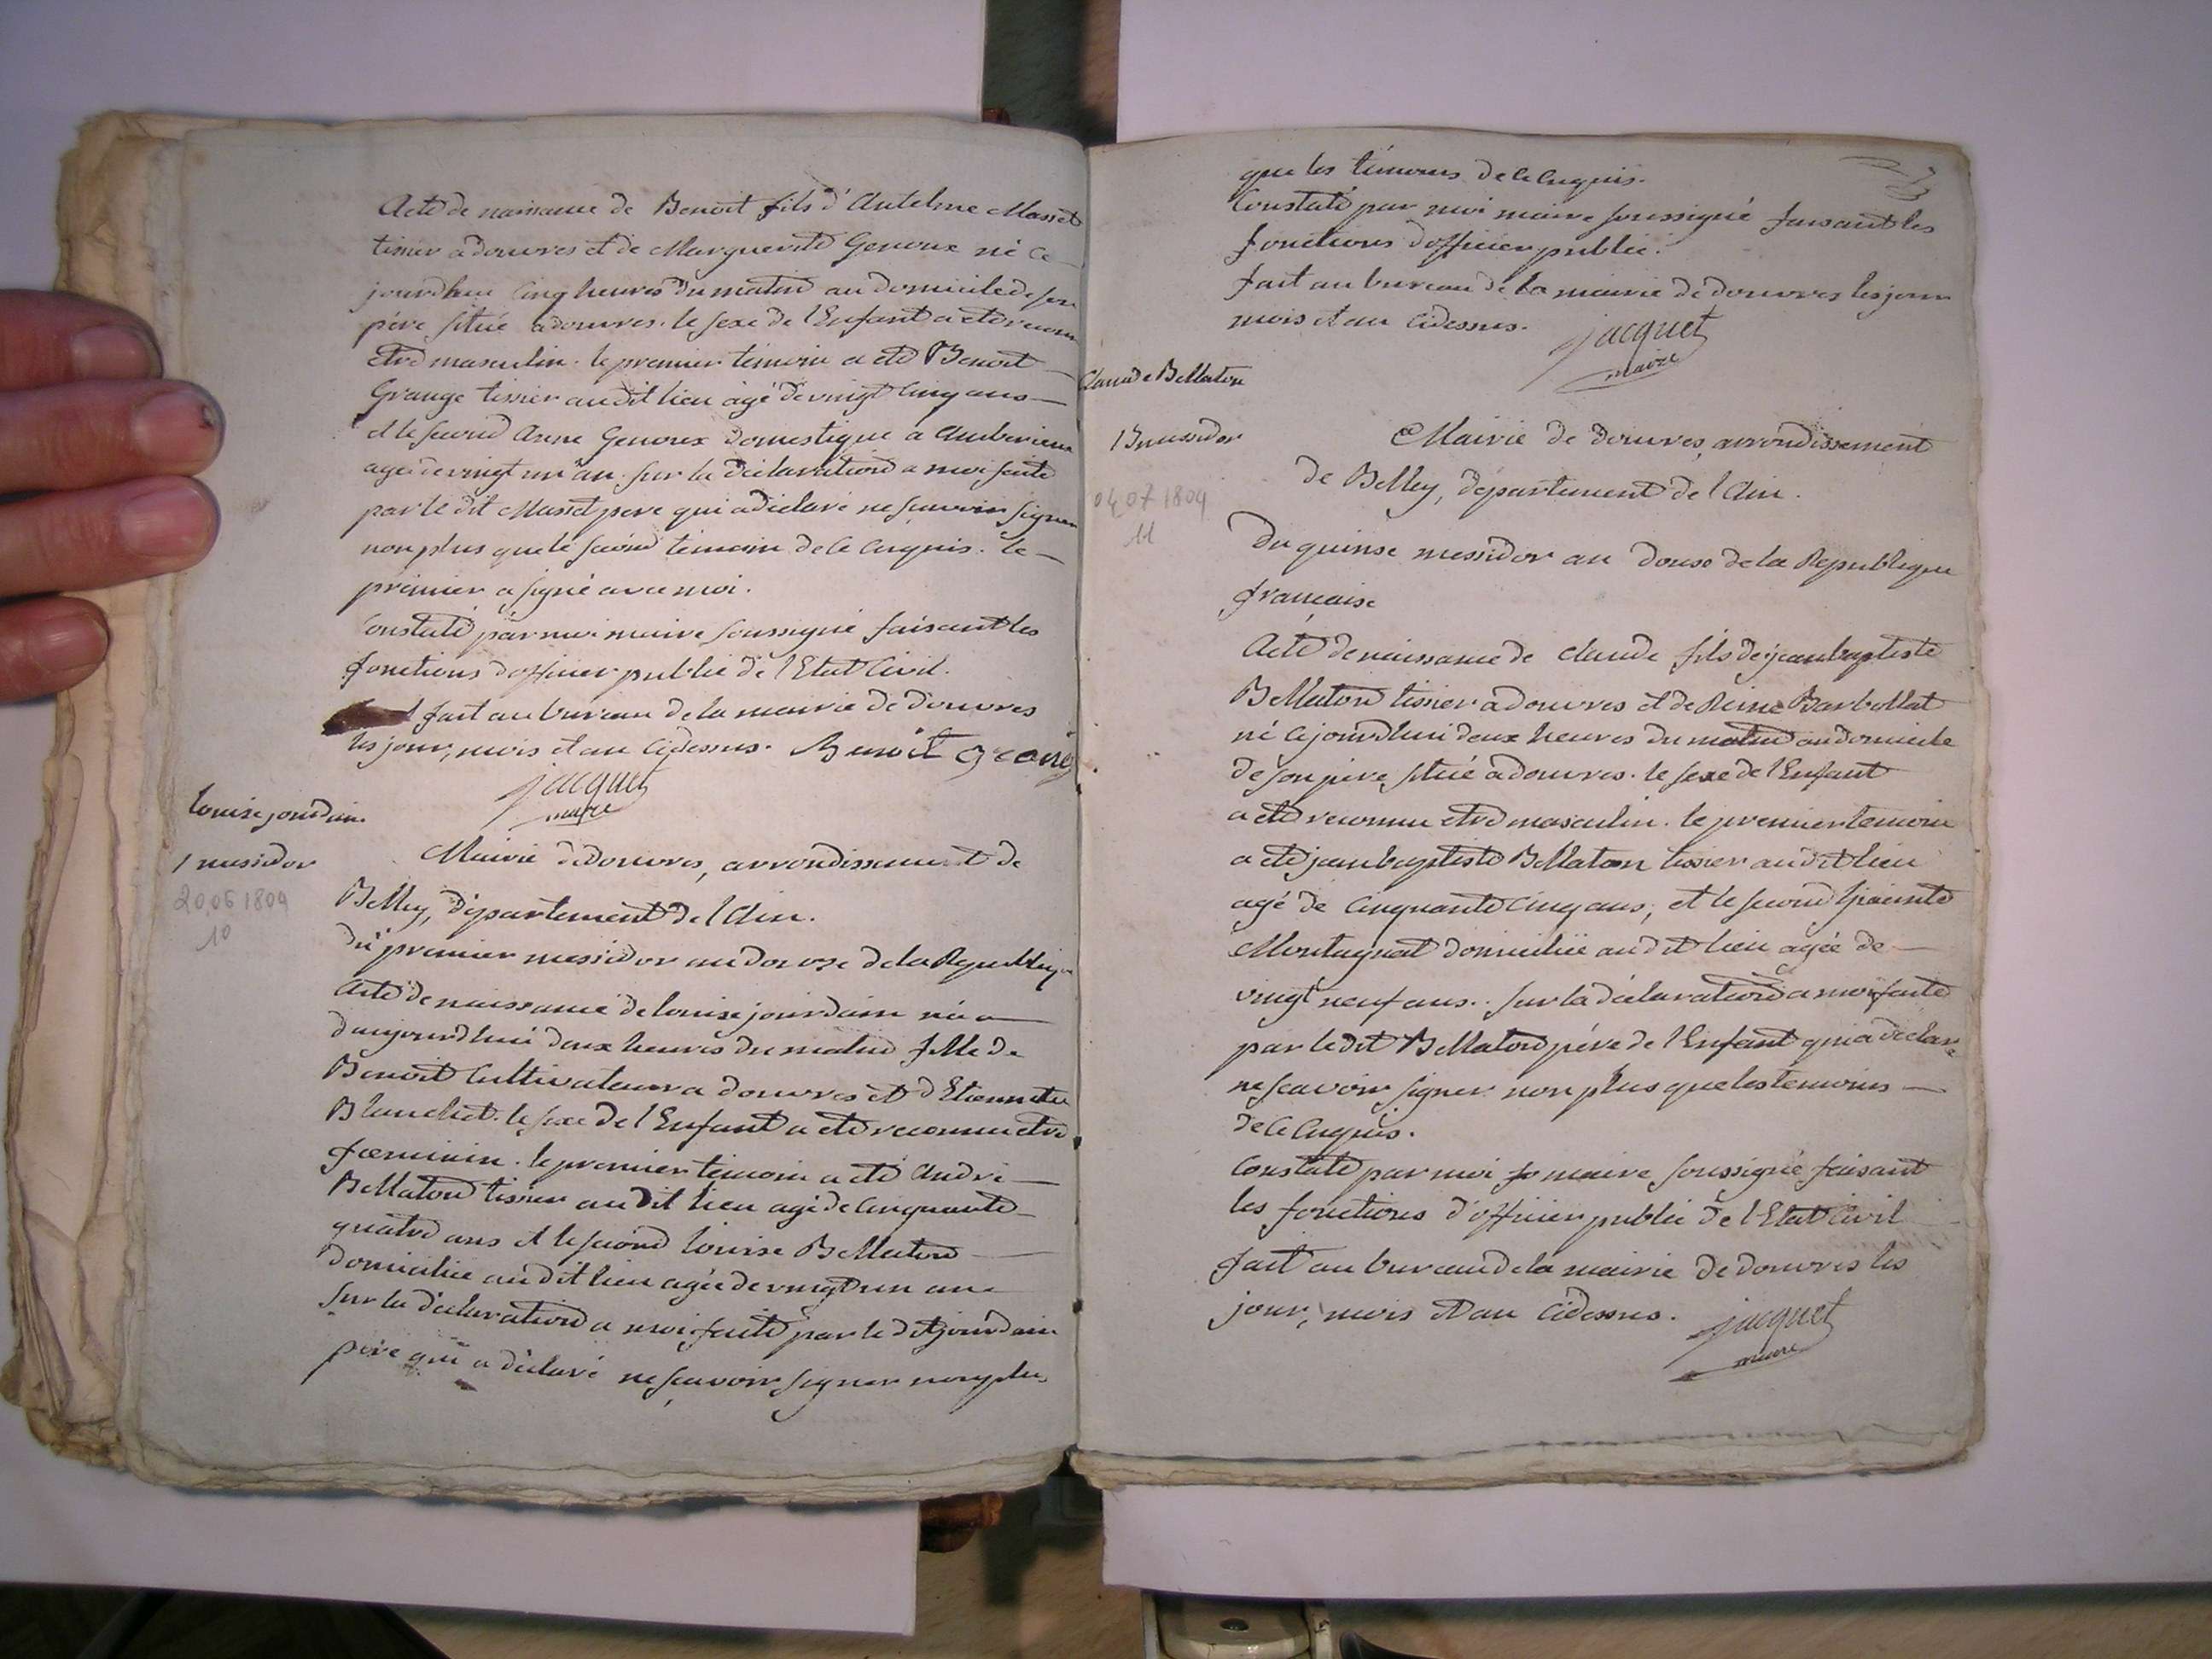 Acte de naissance de Benoit fils d'Antelme Masset
tissier a douvres et de Marguerite Genoux né ce
jourdhui cinq heures du matin au domicile de son
père situé a douvres. le sexe de l'Enfant a eté reconnu
etre masculin. le premier temoin a eté Benoit
Grange tissier audit lieu agé de vingt cinq ans
et le second Anne Genoux domestique a Amberieux
agée de vingt un an. sur la déclaration a moi faite
par le dit Masset pere qui a déclaré ne sçavoir signer
non plus que le second temoin de ce enquis. le
premier a signé avec moi.
Constaté par moi maire soussigné faisant les
fonctions d'officier public de l'Etat Civil.
fait au bureau de la mairie de douvres
les jour, mois et an cidessus. Benoit Grange
jacquet
maire
louise jourdain
1 messidor
20.06 1804
10
Mairie de douvres, arrondissement de
Belley, département de l'Ain.
du premier messidor an douze de la Republique
Acte de naissance de louise jourdain née
d'aujourdhui deux heures du matin fille de
Benoit Cultivateur a douvres et d'Etiennette
Blanchet. le sexe de l'Enfant a eté reconnu etre
foeminin. le premier temoin a eté André
Bellaton tissier audit lieu agé de cinquante
quatre ans et le second louise Bellaton
domiciliée audit lieu agée de vingt un ans
sur la déclaration a moi faite par le dit jourdain
père qui a déclaré ne sçavoir signer non plus
que les témoins de ce enquis.
Constaté par moi maire soussigné faisant les
fonctions d'officier public.
fait au bureau de la mairie de douvres les jour
mois et an cidessus.
jacquet
maire
Claude Bellaton
15 messidor
04 07 1804
11
Mairie de douvres, arrondissement
de Belley, département de l'Ain.
Du quinse messidor an douse de la Republique
française
Acte de naissance de claude fils de jean baptiste
Bellaton tissier a douvres et de Reine Barbollat
né cejourdhui deux heures du matin au domicile
de son père situé a douvres. le sexe de l'Enfant
a eté reconnu etre masculin. le premier temoin
a eté jean baptiste Bellaton tissier audit lieu
agé de cinquante cinq ans, et le second hiacinte
Montagnat domiciliée audit lieu agée de
vingt neuf ans. sur la déclaration a moi faite
par le dit Bellaton père de l'Enfant qui a déclaré
ne scavoir signer non plus que les temoins
de ce enquis.
Constaté par moi maire soussigné faisant
les fonctions d'officier public de l'Etat Civil
fait au bureau de la mairie de douvres les
jour, mois et an cidessus.
jacquet
maire